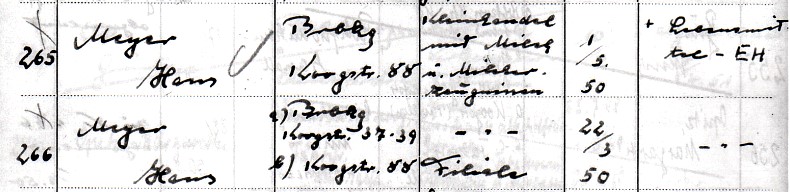 265 Meyer Hans
Brbktg
Koogstr. 88
Kleinhandel
mit Milch
u. Milcher-
zeugnissen
1/5. 50
+ Lebensmit
tel - EH
266 Meyer Hans
a) Brbktg
Koogstr. 37-39
b) Koogstr. 88
- " -
Filiale
22/3 50
- " -